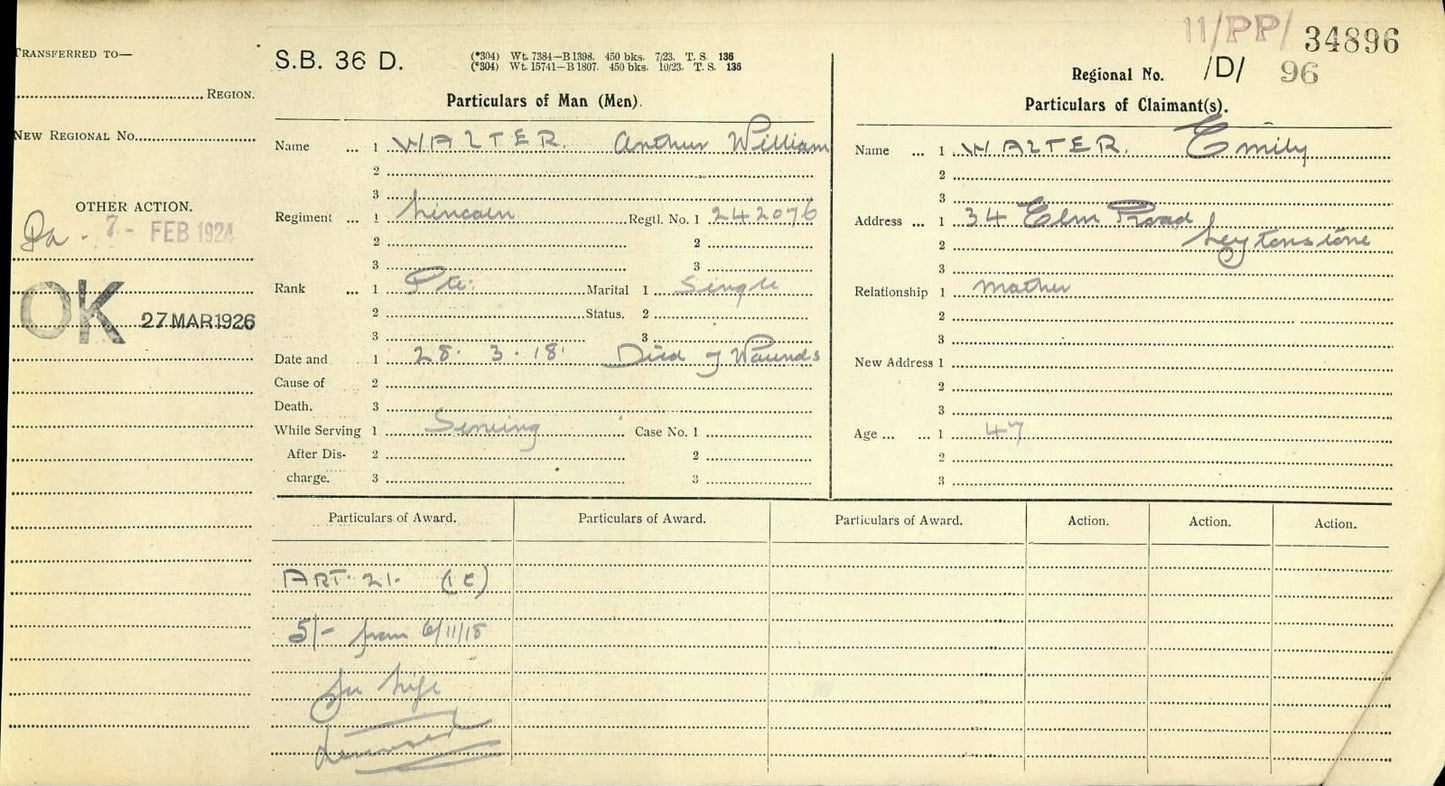 TRANSFERRED TO—
REGION.
NEW REGIONAL NO.
OTHER ACTION.
7 - FEB 1924
OK 27 MAR 1926
S.B. 36 D.
(*304) Wt. 7384—B 1398. 450 bks. 7/23. T. S. 136
(*304) Wt. 15741—B 1807. 450 bks. 10/23. T. S. 136
Particulars of Man (Men).
Name ... 1 WALTER. Arthur William
2
3
Regiment ... 1 Lincoln Regtl. No. 1 242076
2 2
3 3
Rank ... 1 Pte. Marital 1 Single
2 Status. 2
3 3
Date and 1 28. 3. 18. Died of Wounds
Cause of 2
Death. 3
While Serving 1 Serving Case No. 1
After Dis- 2 2
charge. 3 3
11/PP/ 34896
Regional No. /D/ 96
Particulars of Claimant(s).
Name ... 1 WALTER. Emily
2
3
Address ... 1 34 Elm Road
2 Leytonstone
3
Relationship 1 mother
2
3
New Address 1
2
3
Age ... ... 1 47
2
3
Particulars of Award. Particulars of Award. Particulars of Award. Action. Action. Action.
ART. 21. (1 C)
5/- from 6/11/18
for life